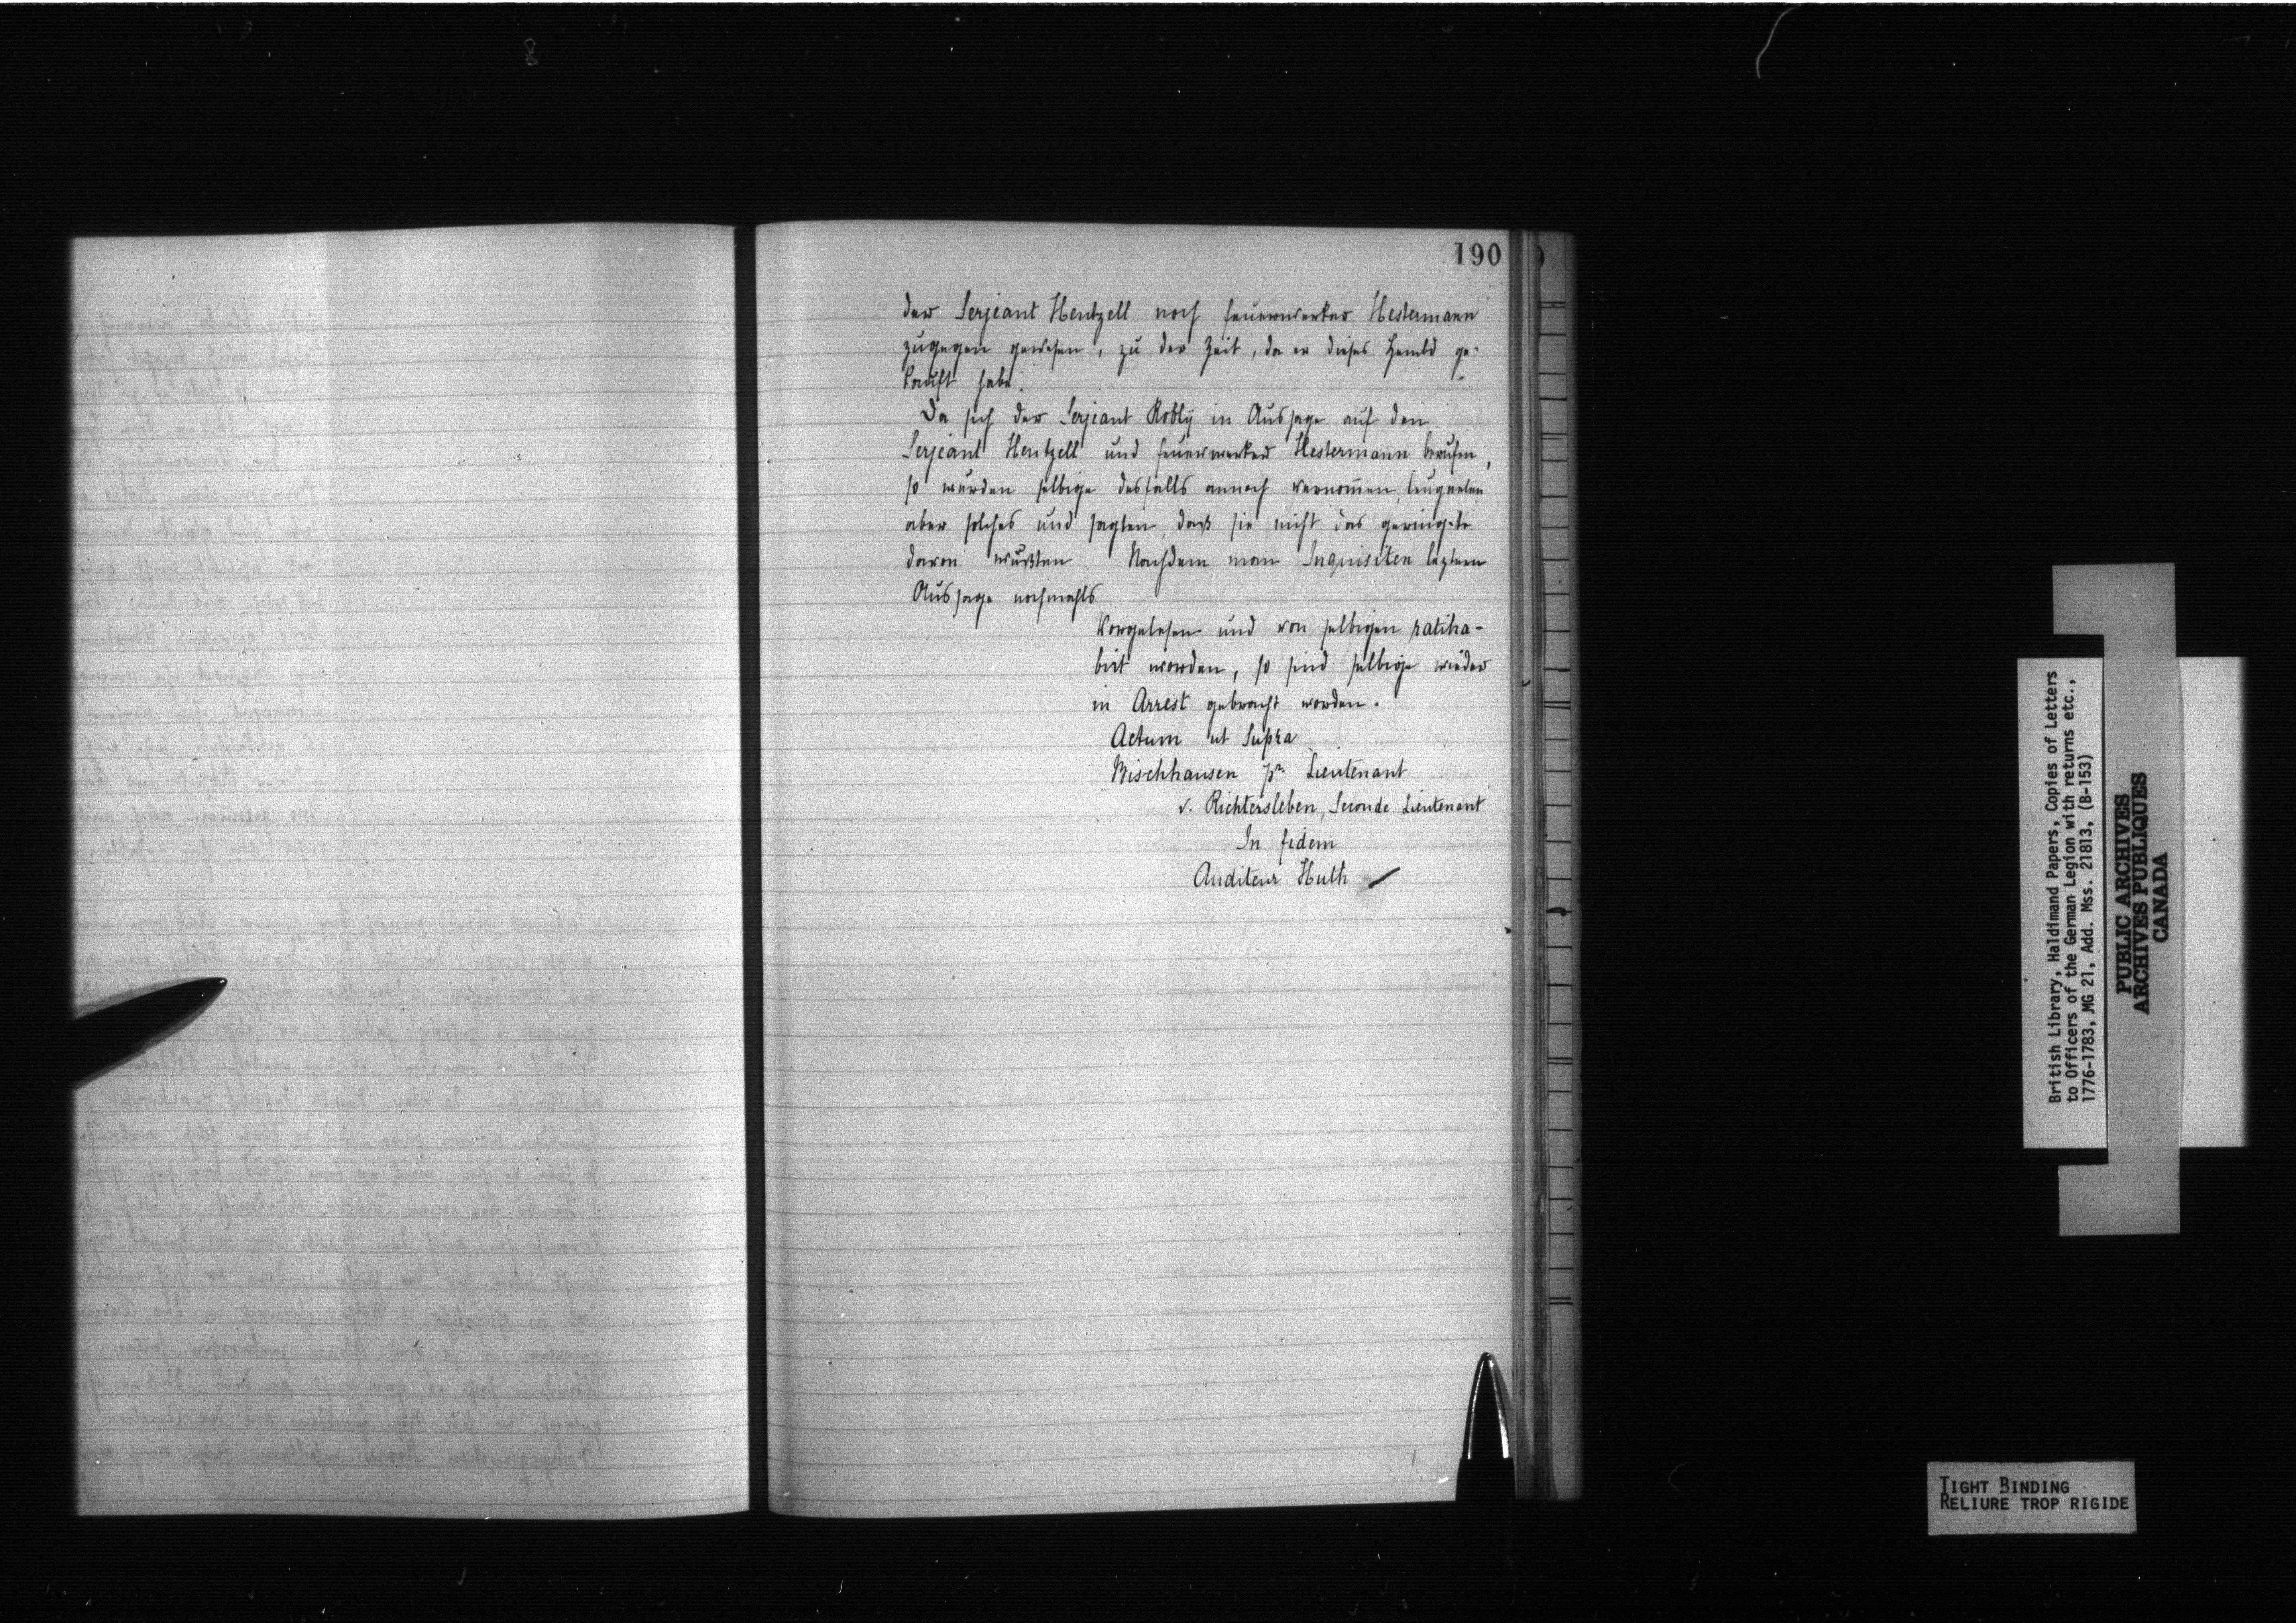 190
der Serjeant Hentzell noch Feuerwerker Hestermann
zugegen gewesen, zu der Zeit, da er dieses Hembd ge-
kauft habe.
Da sich der Serjeant Robly in Aussage auf den
Serjeant Hentzell und Feuerwerker Hestermann berufen,
so wurden selbige desfalls annoch vernomen, leugneten
aber solches und sagten, daß sie nicht das geringste
davon wußten. Nachdem man Inquisiten leztere
Aussage nochmahls
vorgelesen und von selbigen ratiha-
birt worden, so sind selbige wieder
in Arrest gebracht worden.
Actum ut Supra
Bischhausen pr. Lieutenant
v. Richtersleben, Seconde Lieutenant
In fidem
Auditeur Huth
British Library, Haldimand Papers, Copies of Letters
to Officers of the German Legion with returns etc.,
1776-1783, MG 21, Add. Mss. 21813, (B-153)
PUBLIC ARCHIVES
ARCHIVES PUBLIQUES
CANADA
TIGHT BINDING
RELIURE TROP RIGIDE